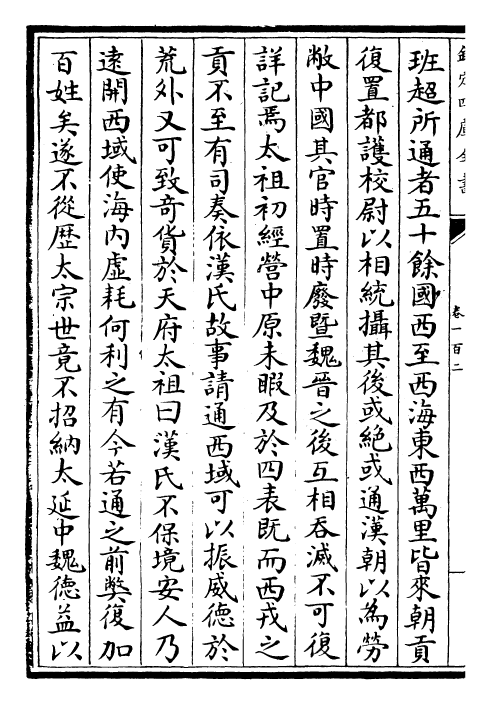 欽定四庫全書
卷一百二
班超所通者五十餘國西至西海東西萬里皆來朝貢
復置都護校尉以相統攝其後或絶或通漢朝以為勞
敝中國其官時置時廢暨魏晉之後互相吞滅不可復
詳記焉太祖初經營中原未暇及於四表既而西戎之
貢不至有司奏依漢氏故事請通西域可以振威德於
荒外又可致竒貨於天府太祖曰漢氏不保境安人乃
遠開西域使海内虛耗何利之有今若通之前弊復加
百姓矣遂不從歴太宗世竟不招納太延中魏德益以